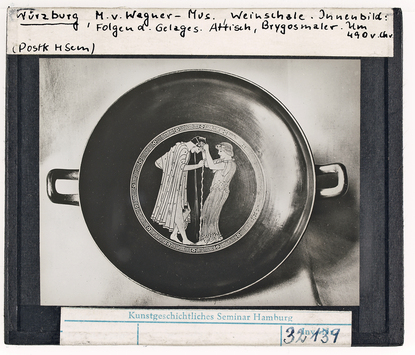 Würzburg, M.v. Wagner-Mus. Weinschale. Innenbild:
Folgen d. Gelages. Attisch, Brygosmaler. Um
490 v. Chr
(Postk HSem)
Kunstgeschichtliches Seminar Hamburg
32139